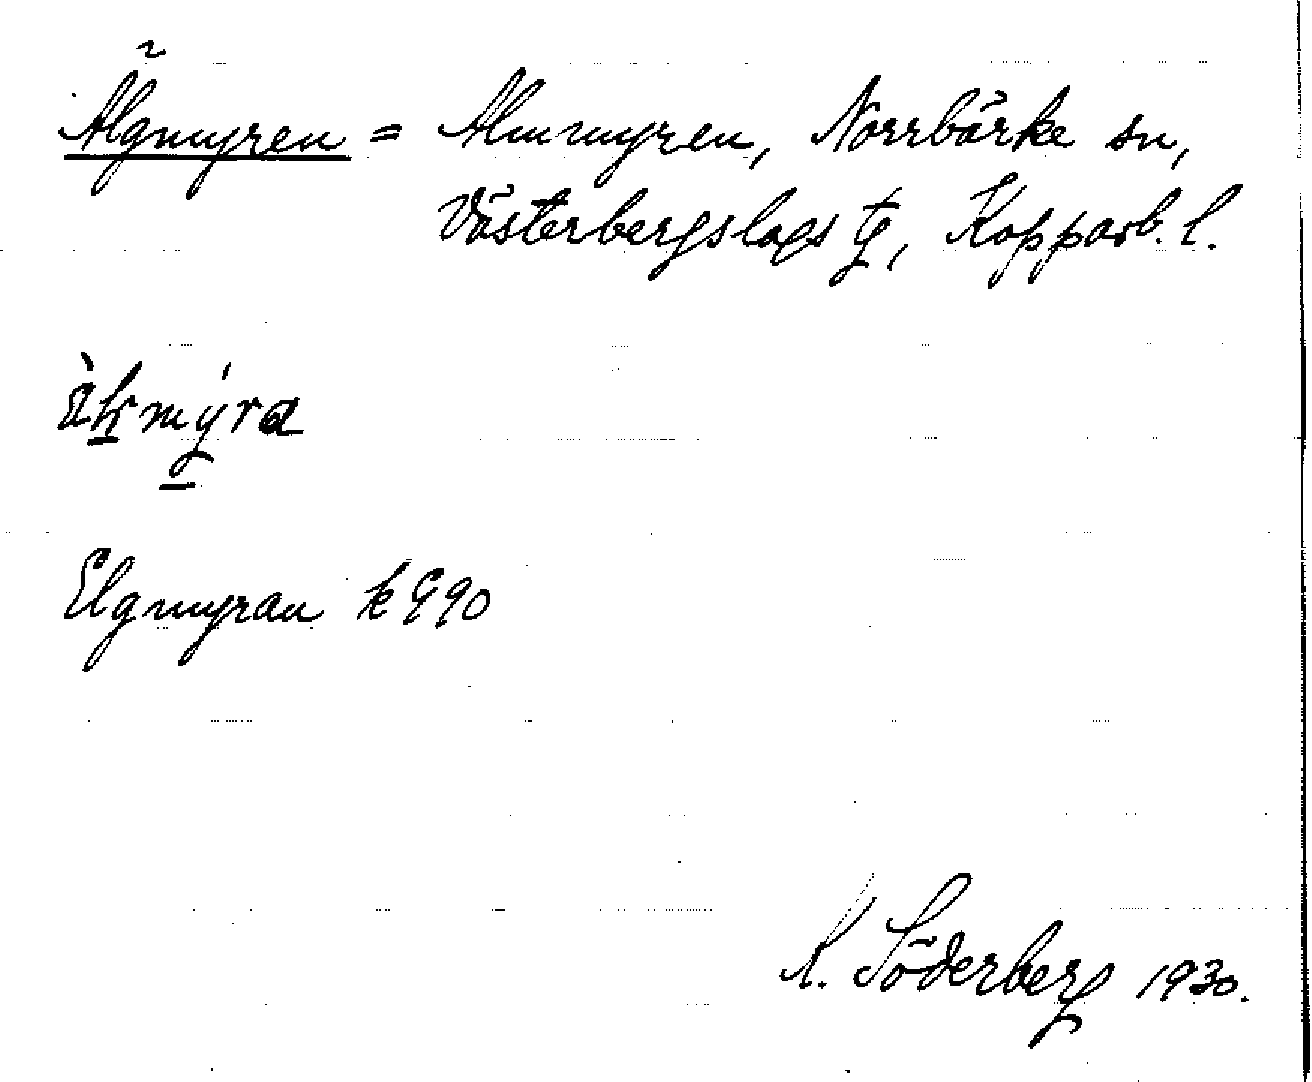 Älgmyren = Almmyren, Norrbärke sn,
Västerbergslags tg, Kopparb. l.
Elgmyran k 990
K. Söderberg 1930.